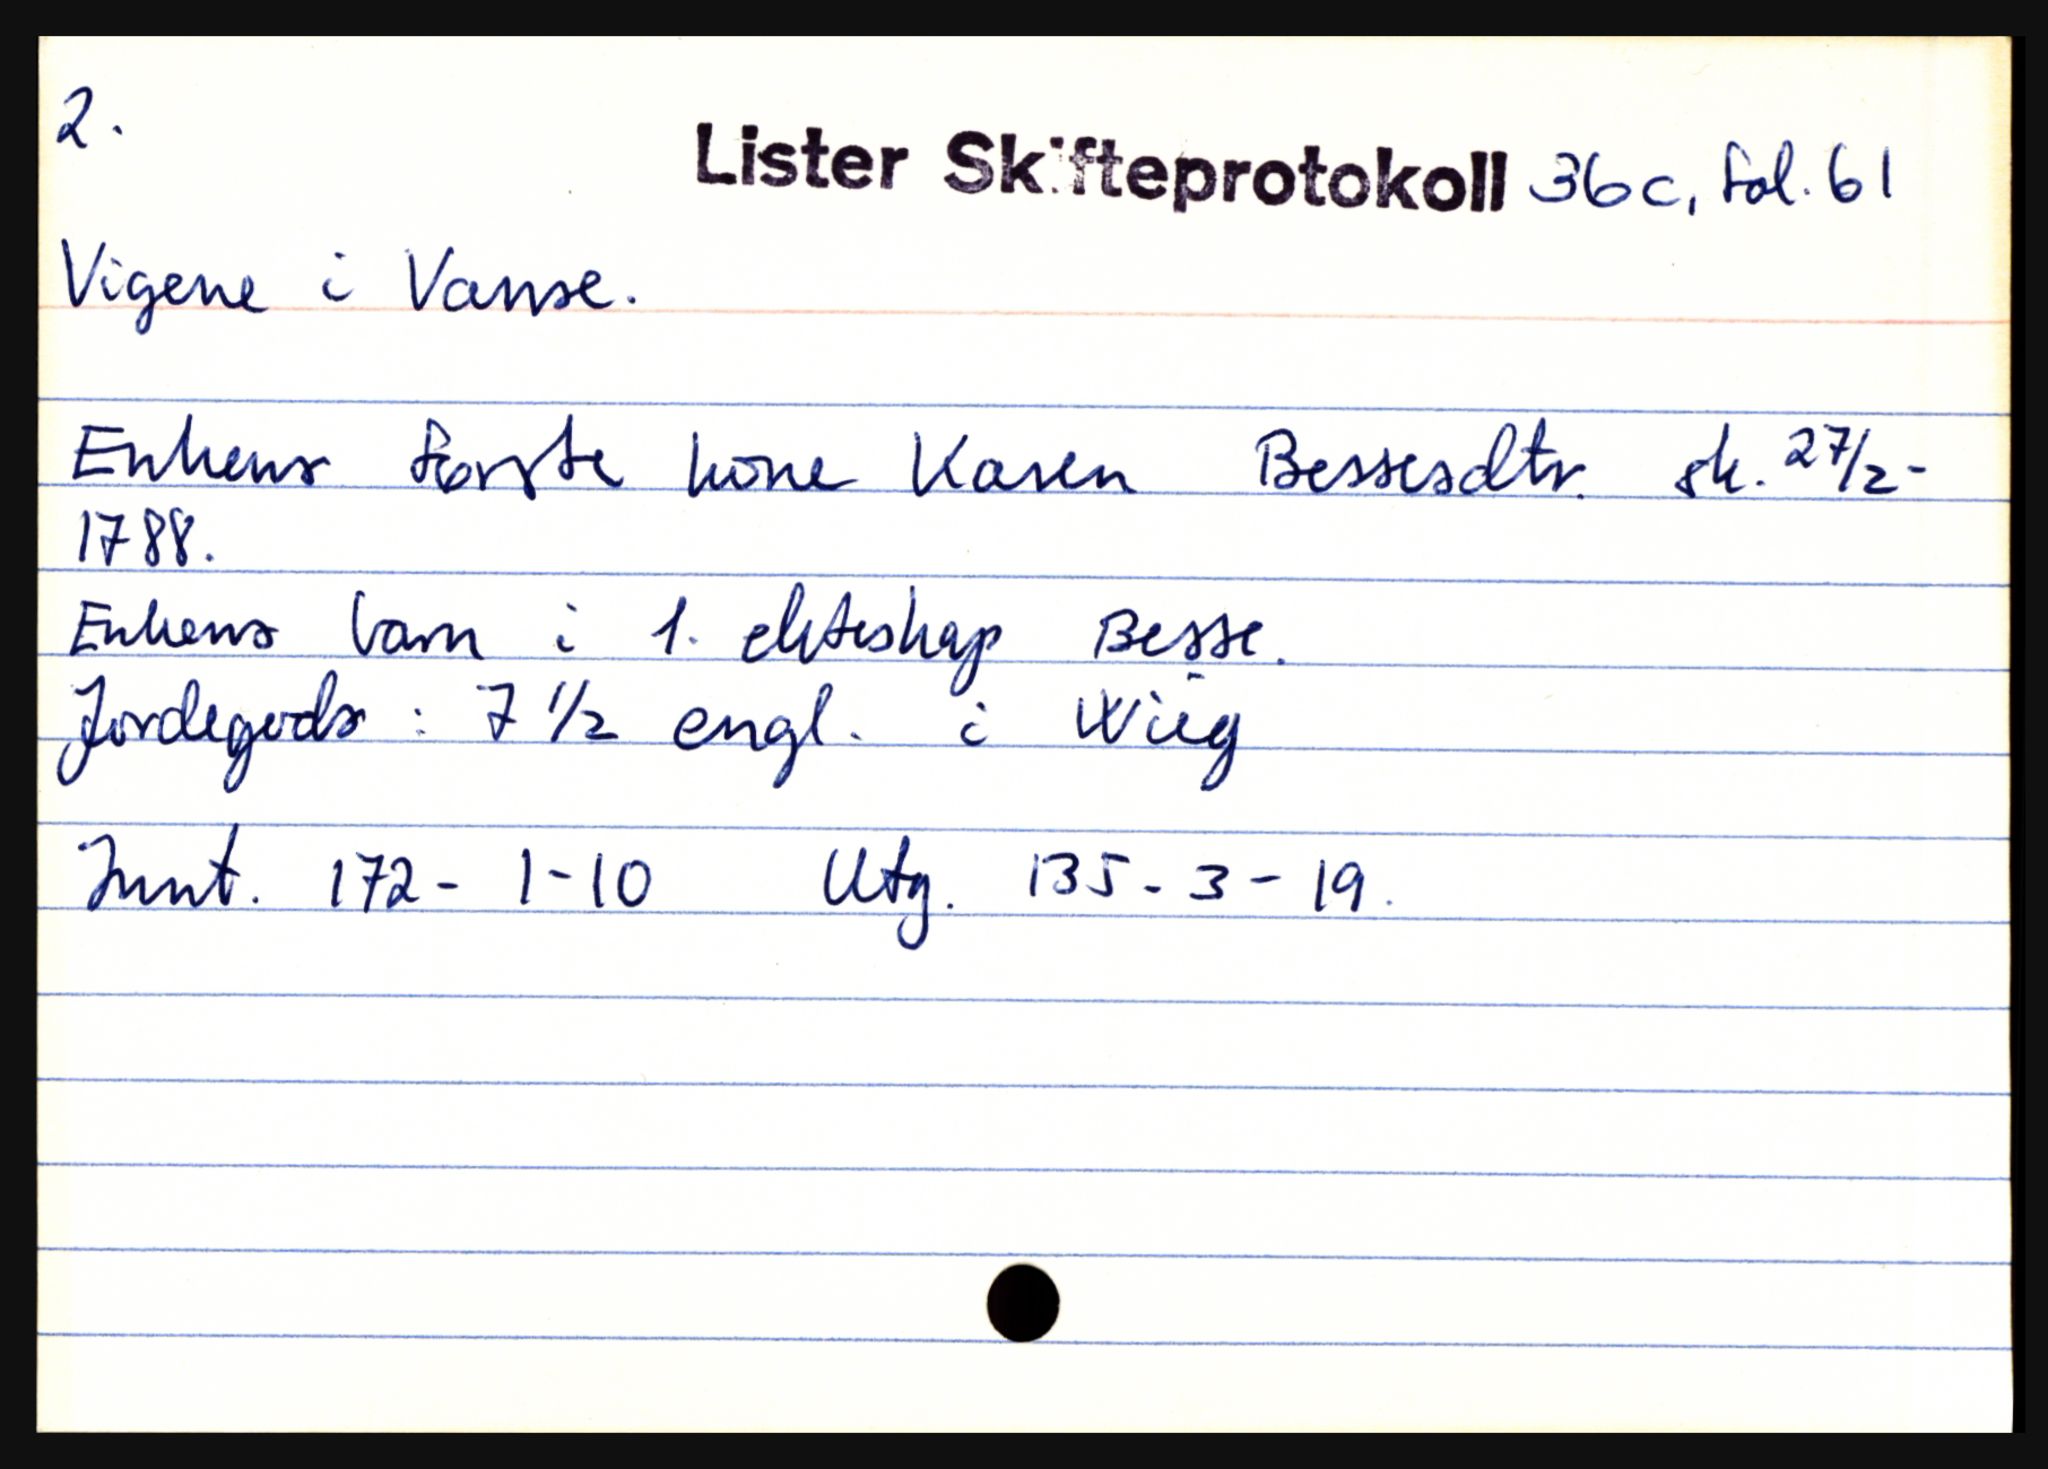 2.
Lister Skifteprotokoll 36c, fol. 61
Vigene i Vanse.
Enkens første kone Karen Bessesdtr. sk. 27/2-
1788.
Enkens barn i 1. ekteskap Besse.
Jordegods : 7 1/2 engl. i Wiig
Innt. 172- 1-10 Utg. 135-3-19.